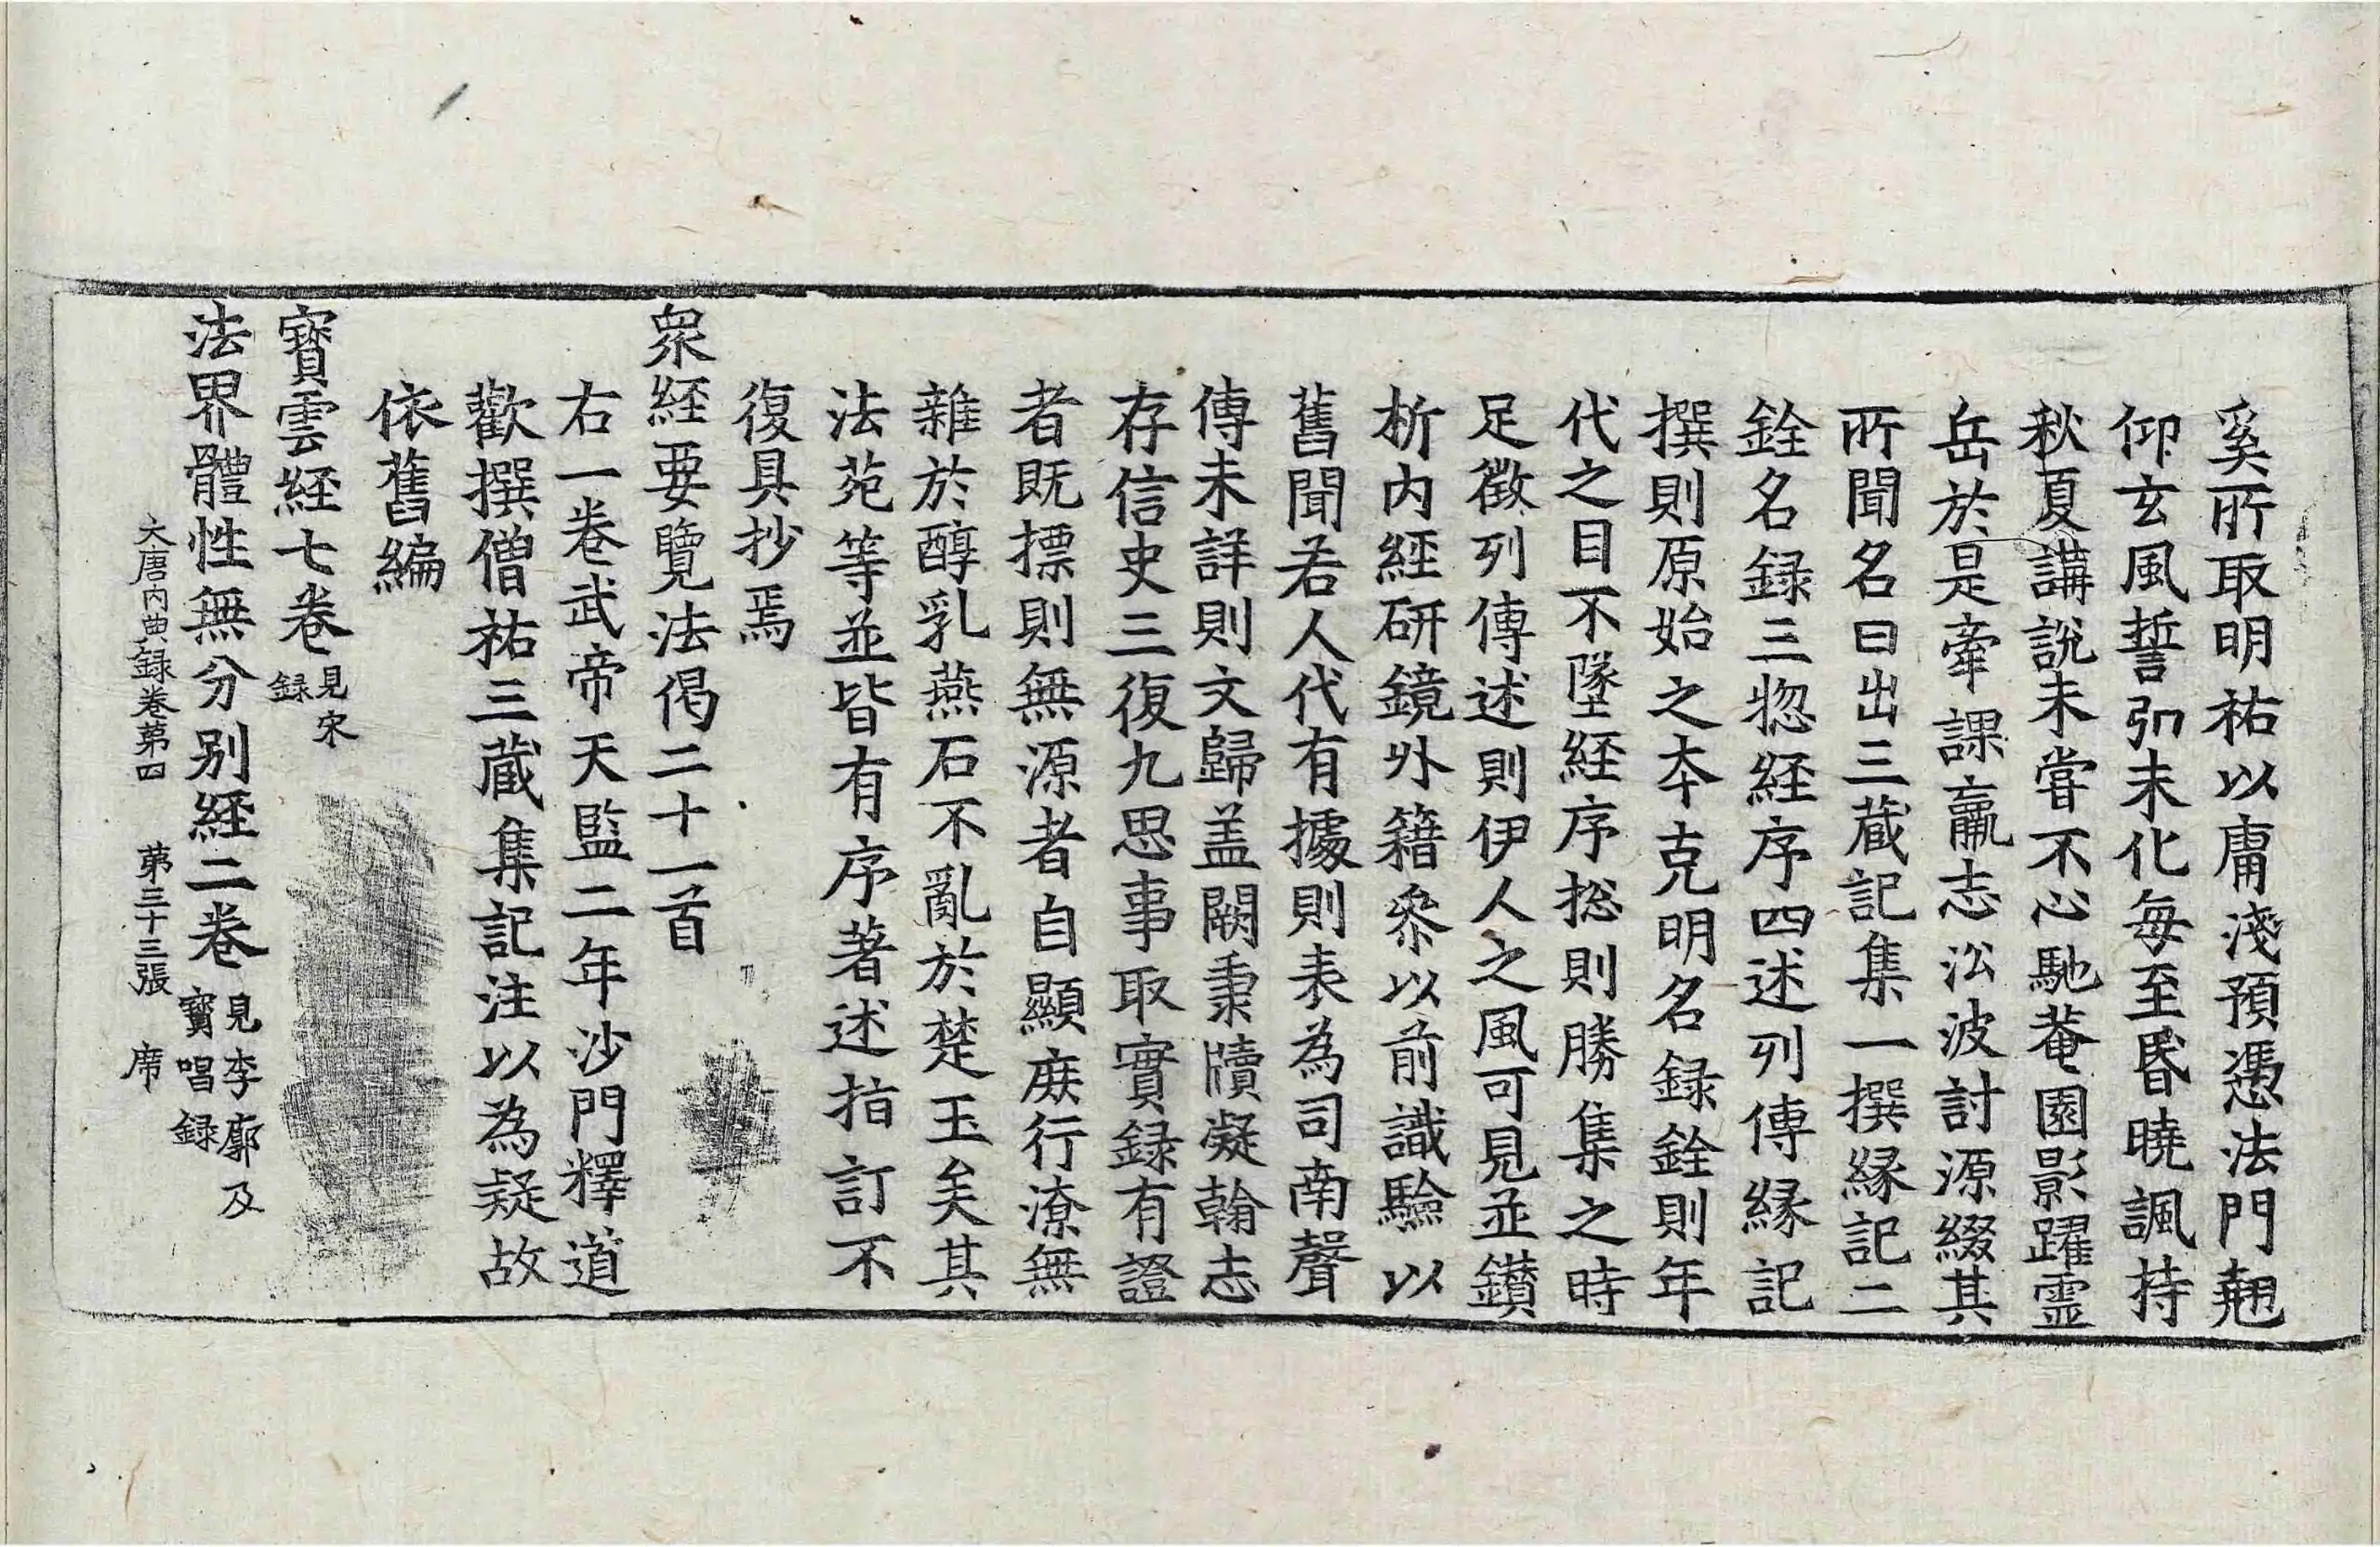 奚所取明祐以庸淺預憑法門翹
仰玄風誓引未化每至昏曉諷持
秋夏講說未嘗不心馳菴園影躍靈
岳於是牽課羸志沿波討源綴其
所聞名曰出三蔵記集一撰縁記二
銓名録三惣経序四述列傳縁記
撰則原始之本克明名録銓則年
代之目不墜経序揔則勝集之時
足徵列傳述則伊人之風可見並鑚
析内経研鏡外籍叅以前識驗以
舊聞若人代有據則表為司南聲
傳未詳則文歸盖闕秉牘凝翰志
存信史三復九思事取實録有證
者既摽則無源者自顯庻行潦無
雜於醇乳燕石不亂於楚玉矣其
法苑等並皆有序著述指訂不
復具抄焉
衆経要覽法偈二十一首
右一卷武帝天監二年沙門釋道
歡撰僧祐三蔵集記注以為疑故
依舊編
寶雲経七卷見宋録
法界體性無分別経二卷見李廓及寶唱録
大唐内典録卷第四 第三十三張 席